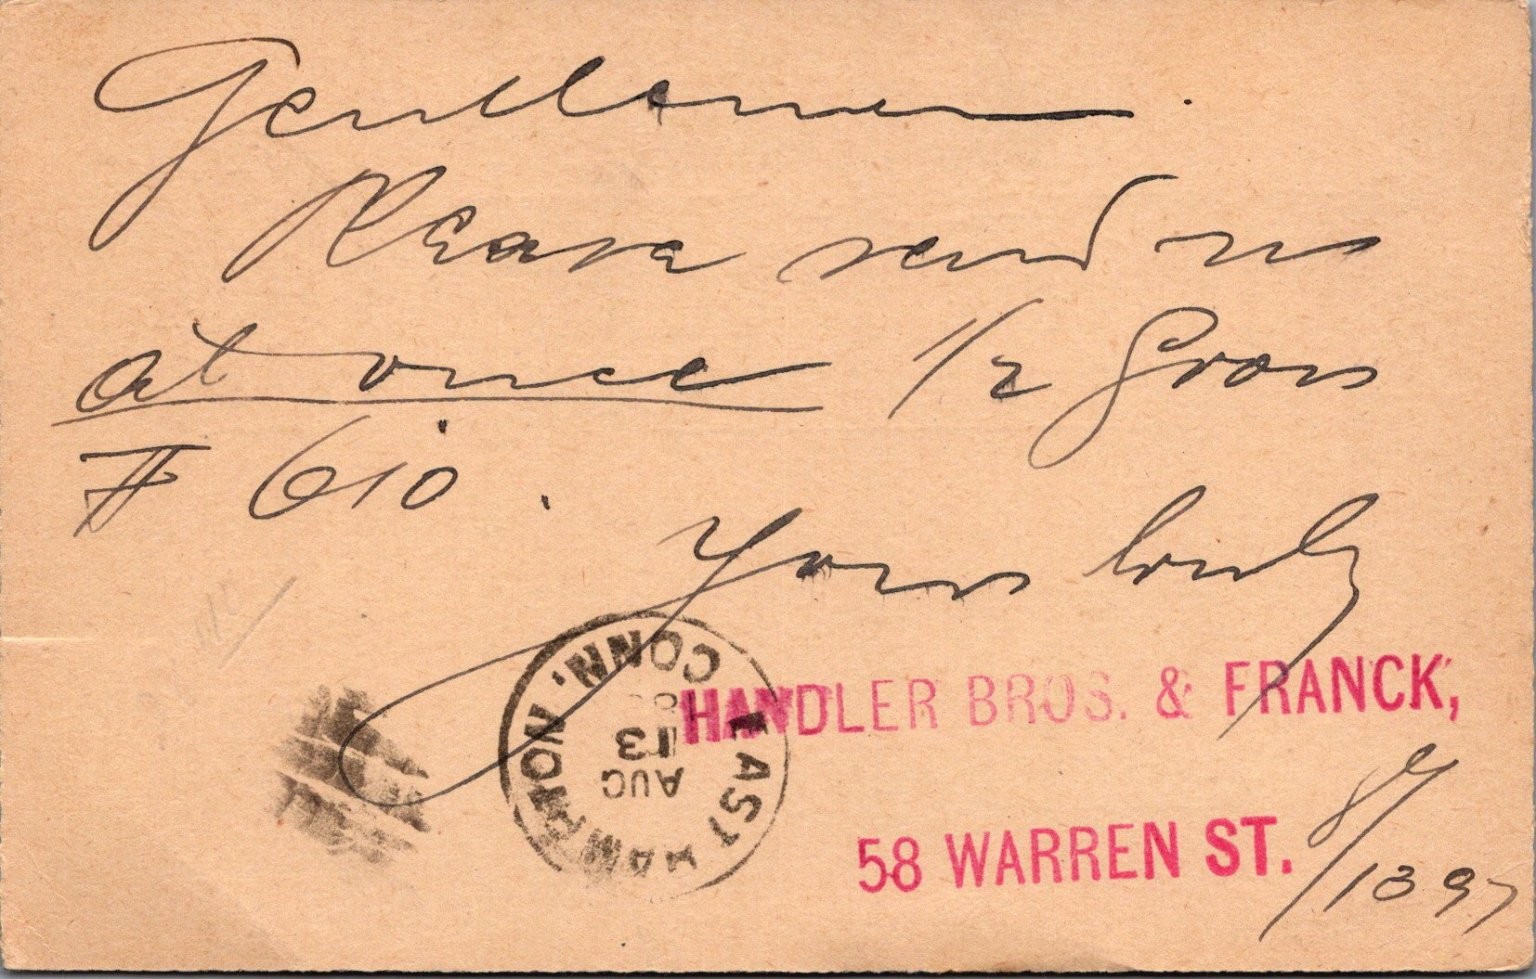 Gentlemen.
Please send us
at once 1/2 Gross
# 610.
Yours truly
HANDLER BROS. & FRANCK,
58 WARREN ST.
8/1397
EAST HAMPTON, CONN.
AUG
13